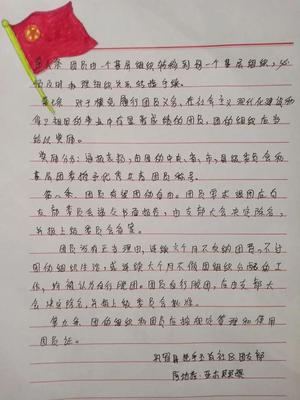 第六条 团员由一个基层组织转移到另一个基层组织,必
须及时办理组织关系转接手续。
第七条 对于模范履行团员义务,在社会主义现代化建设和
保卫祖国的事业中有显著成绩的团员,团的组织应当
给以奖励。
奖励分为:通报表扬,由团的中央、省、市、县级委员会和
基层团委授予优秀共青团员称号。
第八条 团员有退团的自由。团员要求退团应向
支部委员会递交书面报告,由支部大会决定除名,
并报上级委员会备案。
团员没有正当理由,连续六个月不交纳团费、不过
团的组织生活,或连续六个月不做团组织分配的工
作,均被认为自行脱团。团员自行脱团,应由支部大
会决定除名,并报上级委员会批准。
第九条 团的组织和团员应按规定管理和使用
团员证。
社区团支部